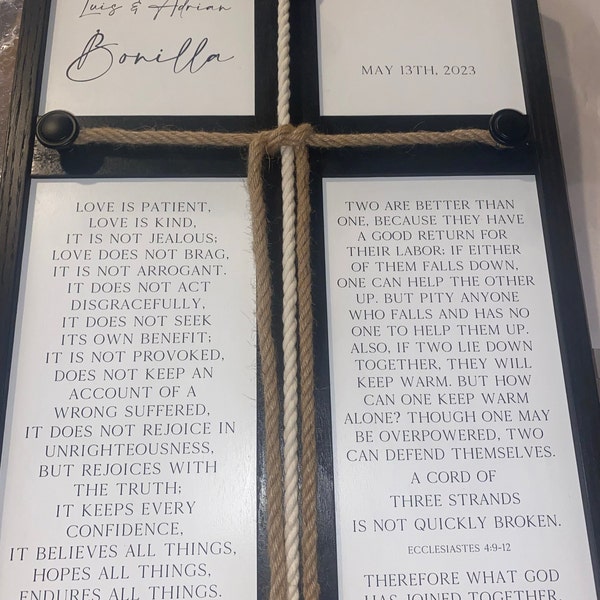 Luis & Adrian
Bonilla
MAY 13TH, 2023
LOVE IS PATIENT,
LOVE IS KIND,
IT IS NOT JEALOUS;
LOVE DOES NOT BRAG,
IT IS NOT ARROGANT.
IT DOES NOT ACT
DISGRACEFULLY,
IT DOES NOT SEEK
ITS OWN BENEFIT;
IT IS NOT PROVOKED,
DOES NOT KEEP AN
ACCOUNT OF A
WRONG SUFFERED,
IT DOES NOT REJOICE IN
UNRIGHTEOUSNESS,
BUT REJOICES WITH
THE TRUTH;
IT KEEPS EVERY
CONFIDENCE,
IT BELIEVES ALL THINGS,
HOPES ALL THINGS,
ENDURES ALL THINGS.
TWO ARE BETTER THAN
ONE, BECAUSE THEY HAVE
A GOOD RETURN FOR
THEIR LABOR; IF EITHER
OF THEM FALLS DOWN,
ONE CAN HELP THE OTHER
UP. BUT PITY ANYONE
WHO FALLS AND HAS NO
ONE TO HELP THEM UP.
ALSO, IF TWO LIE DOWN
TOGETHER, THEY WILL
KEEP WARM. BUT HOW
CAN ONE KEEP WARM
ALONE? THOUGH ONE MAY
BE OVERPOWERED, TWO
CAN DEFEND THEMSELVES.
A CORD OF
THREE STRANDS
IS NOT QUICKLY BROKEN.
ECCLESIASTES 4:9-12
THEREFORE WHAT GOD
HAS JOINED TOGETHER,